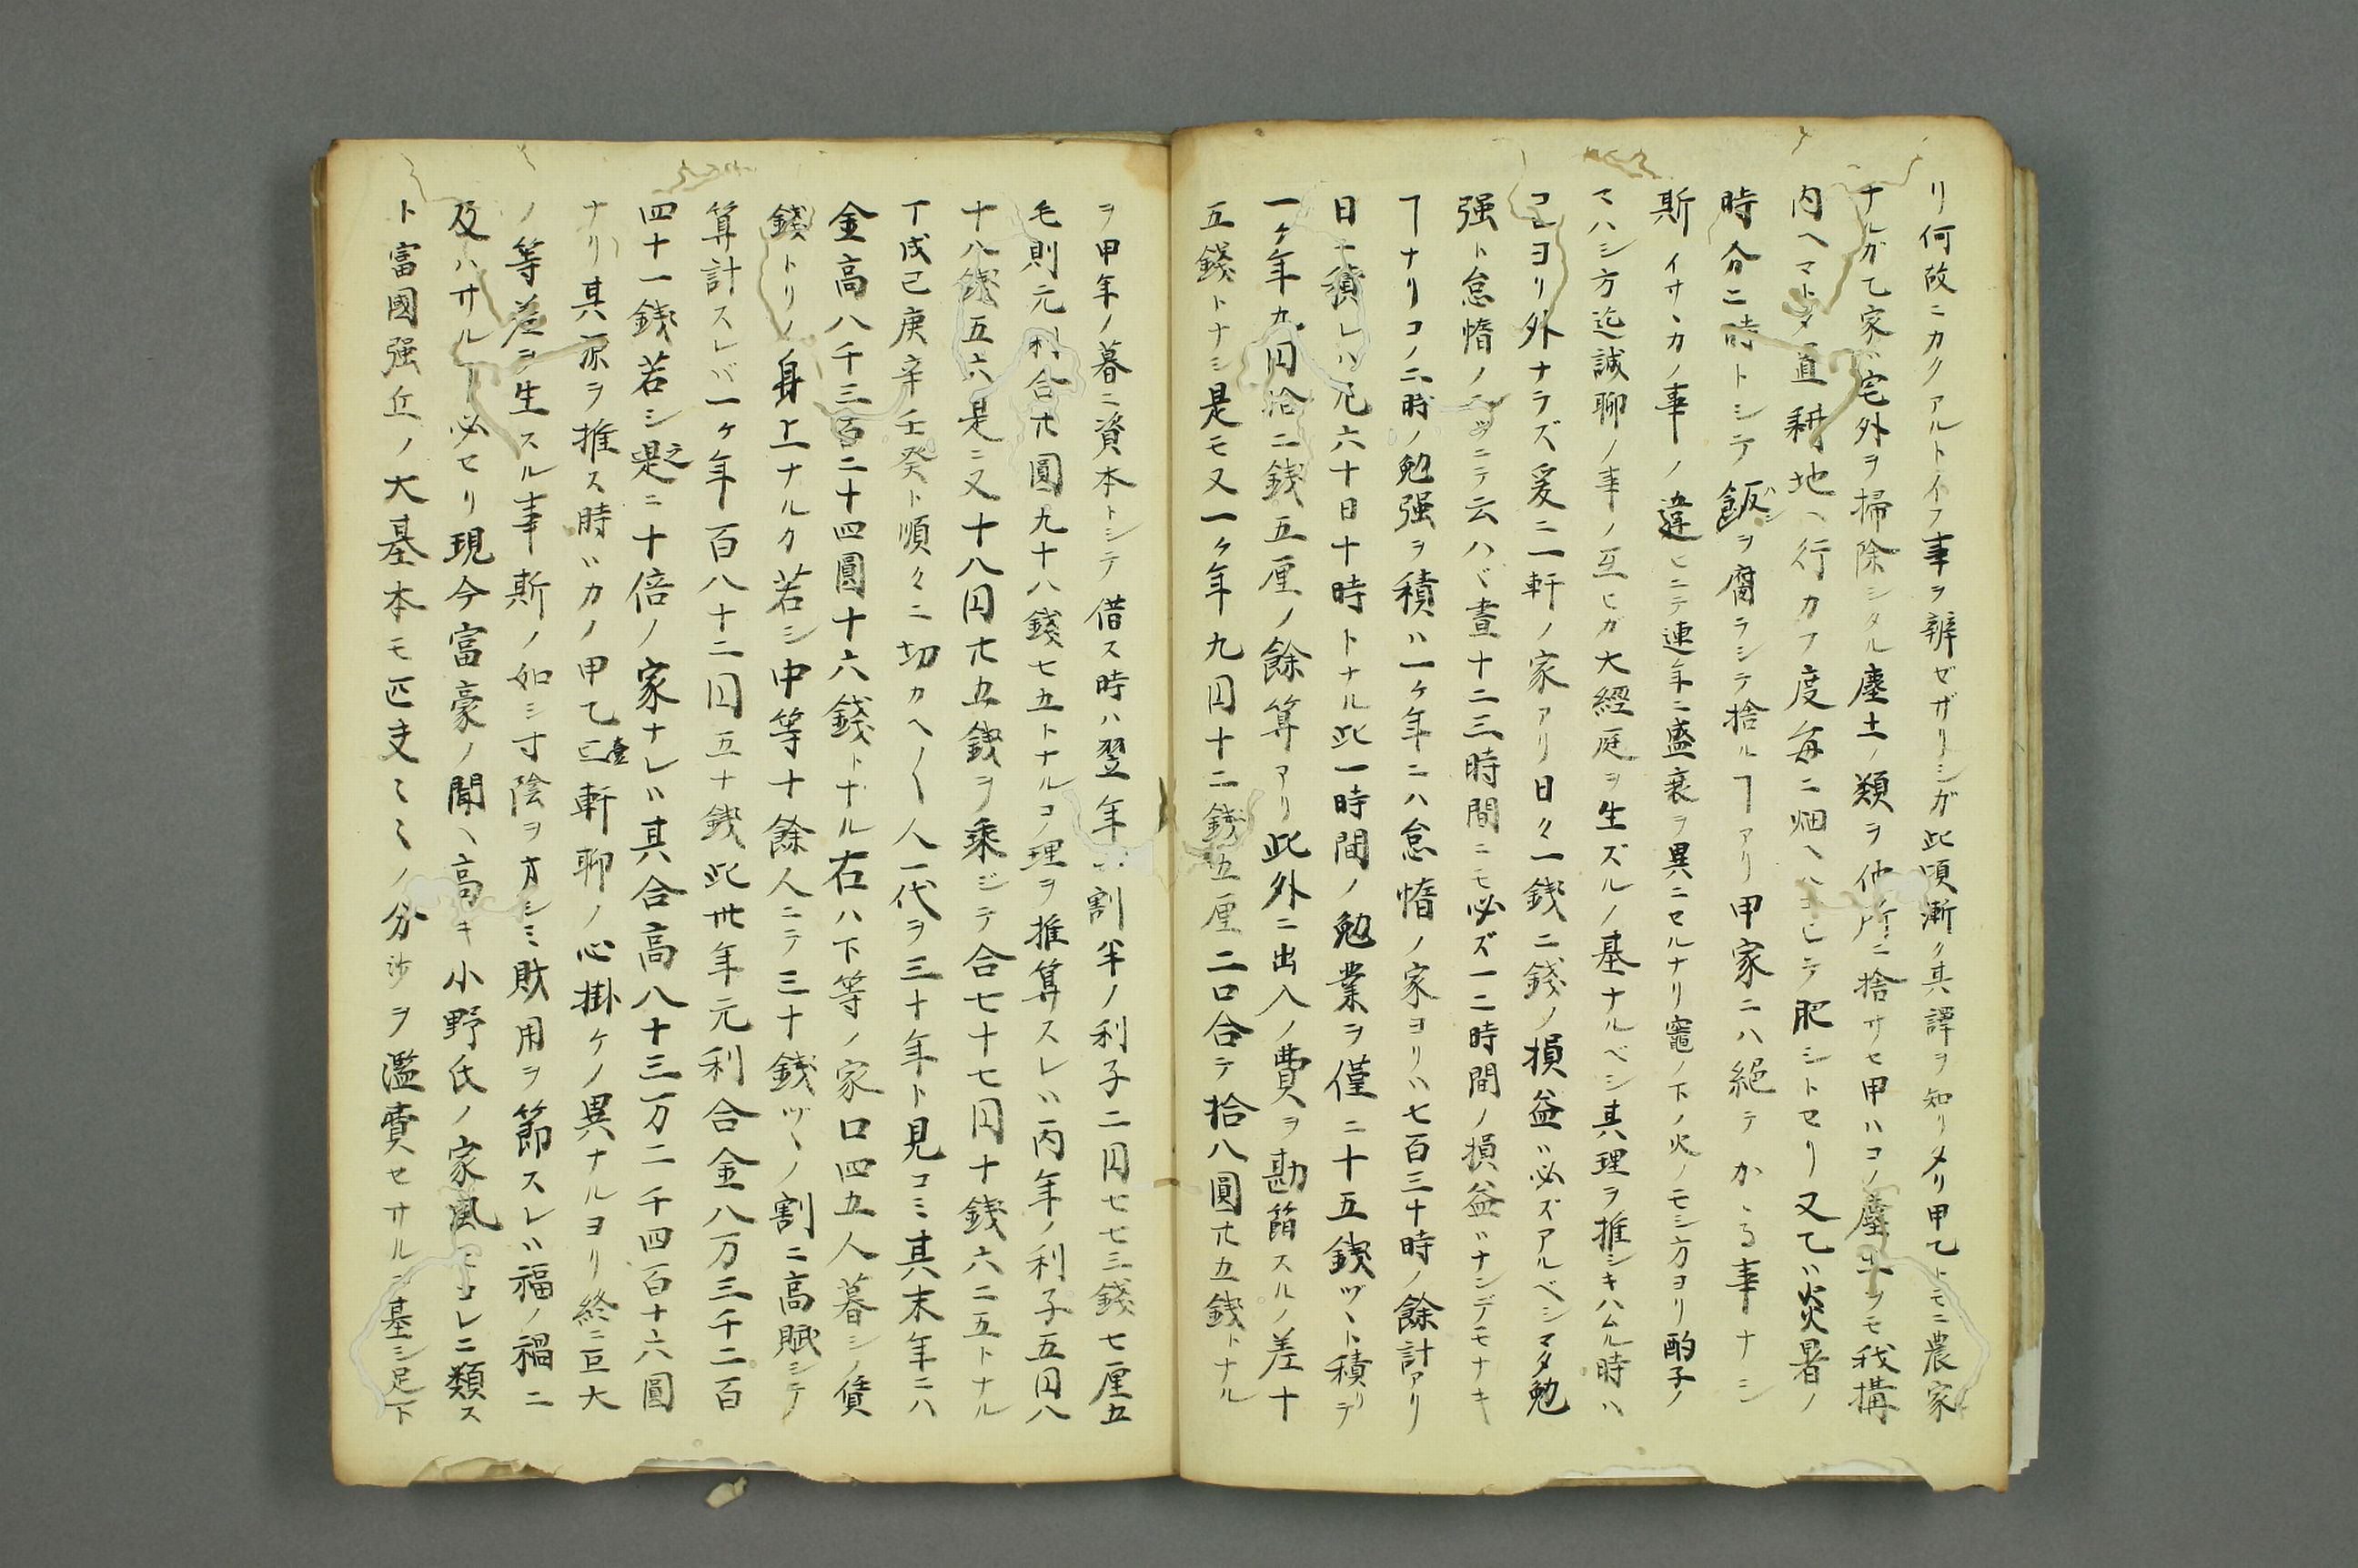 リ何故ニカクアルトイフ事ヲ辨ゼザリシガ此頃漸ク其譯ヲ知リタリ甲乙トモニ農家
ナルガ乙家ハ宅外ヲ掃除シタル塵土ノ類ヲ他所ニ捨サセ甲ハコノ塵土ヲモ我構
内ヘマトメ置耕地ヘ行カフ度毎ニ畑ヘハコビテ肥シトセリ又乙ハ炎暑ノ
時分ニ時トシテ飯ヲ腐ラシテ捨ルヿアリ甲家ニハ絶テかゝる事ナシ
斯イサヽカノ事ノ違ヒニテ連年ニ盛衰ヲ異ニセルナリ竈ノ下ノ火ノモシ方ヨリ酌子ノ
マハシ方迄誠聊ノ事ノ互ヒガ大經庭ヲ生ズルノ基ナルベシ其理ヲ推シキハムル時ハ
コレヨリ外ナラズ爰ニ一軒ノ家アリ日々一銭二銭ノ損益ハ必ズアルベシマタ勉
强ト怠惰ノ二ツニテ云ハヾ晝十二三時間ニモ必ズ一二時間ノ損益ハナンデモナキ
ヿナリコノ二時ノ勉强ヲ積ハ一ヶ年ニハ怠惰ノ家ヨリハ七百三十時ノ餘計アリ
日ニ積レハ凡六十日十時トナル此一時間ノ勉業ヲ僅ニ十五銭ヅヽト積リテ
一ヶ年九円拾二銭五厘ノ餘算アリ此外ニ出入ノ費ヲ勘節スルノ差十
五錢トナシ是モ又一ヶ年九円十二銭五厘二口合テ拾八圓廿五銭トナル
ヲ甲年ノ暮ニ資本トシテ借ス時ハ翌年ハ割半ノ利子二円七七三錢七厘五
毛則元利合廿圓九十八錢七五トナルコノ理ヲ推算スレハ丙年ノ利子五円八
十八銭五六是ニ又十八円廿五銭ヲ乘ジテ合七十七円十銭六二五トナル
丁戊己庚辛壬癸ト順々ニ切カヘ〱人一代ヲ三十年ト見コミ其末年ニハ
金高八千三百二十四圓十六錢トナル右ハ下等ノ家口四五人暮シノ賃
錢トリノ身上ナルカ若シ中等十餘人ニテ三十錢ヅヽノ割ニ高賦シテ
算計スレバ一ヶ年百八十二円五十銭此卅年元利合金八万三千二百
四十一銭若シ是之ニ十倍ノ家ナレハ其合高八十三万二千四百十六圓
ナリ其源ヲ推ス時ハカノ甲乙壹軒聊ノ心掛ケノ異ナルヨリ終ニ巨大
ノ等差ヲ生スル事斯ノ如シ寸陰ヲオシミ財用ヲ節スレハ福ノ福ニ
及ハサルヿ必セリ現今富豪ノ聞ヘ高キ小野氏ノ家風コレニ類ス
ト富國强丘ノ大基本モ匹夫〻〻ノ分沙ヲ濫費セサルニ基シ足下